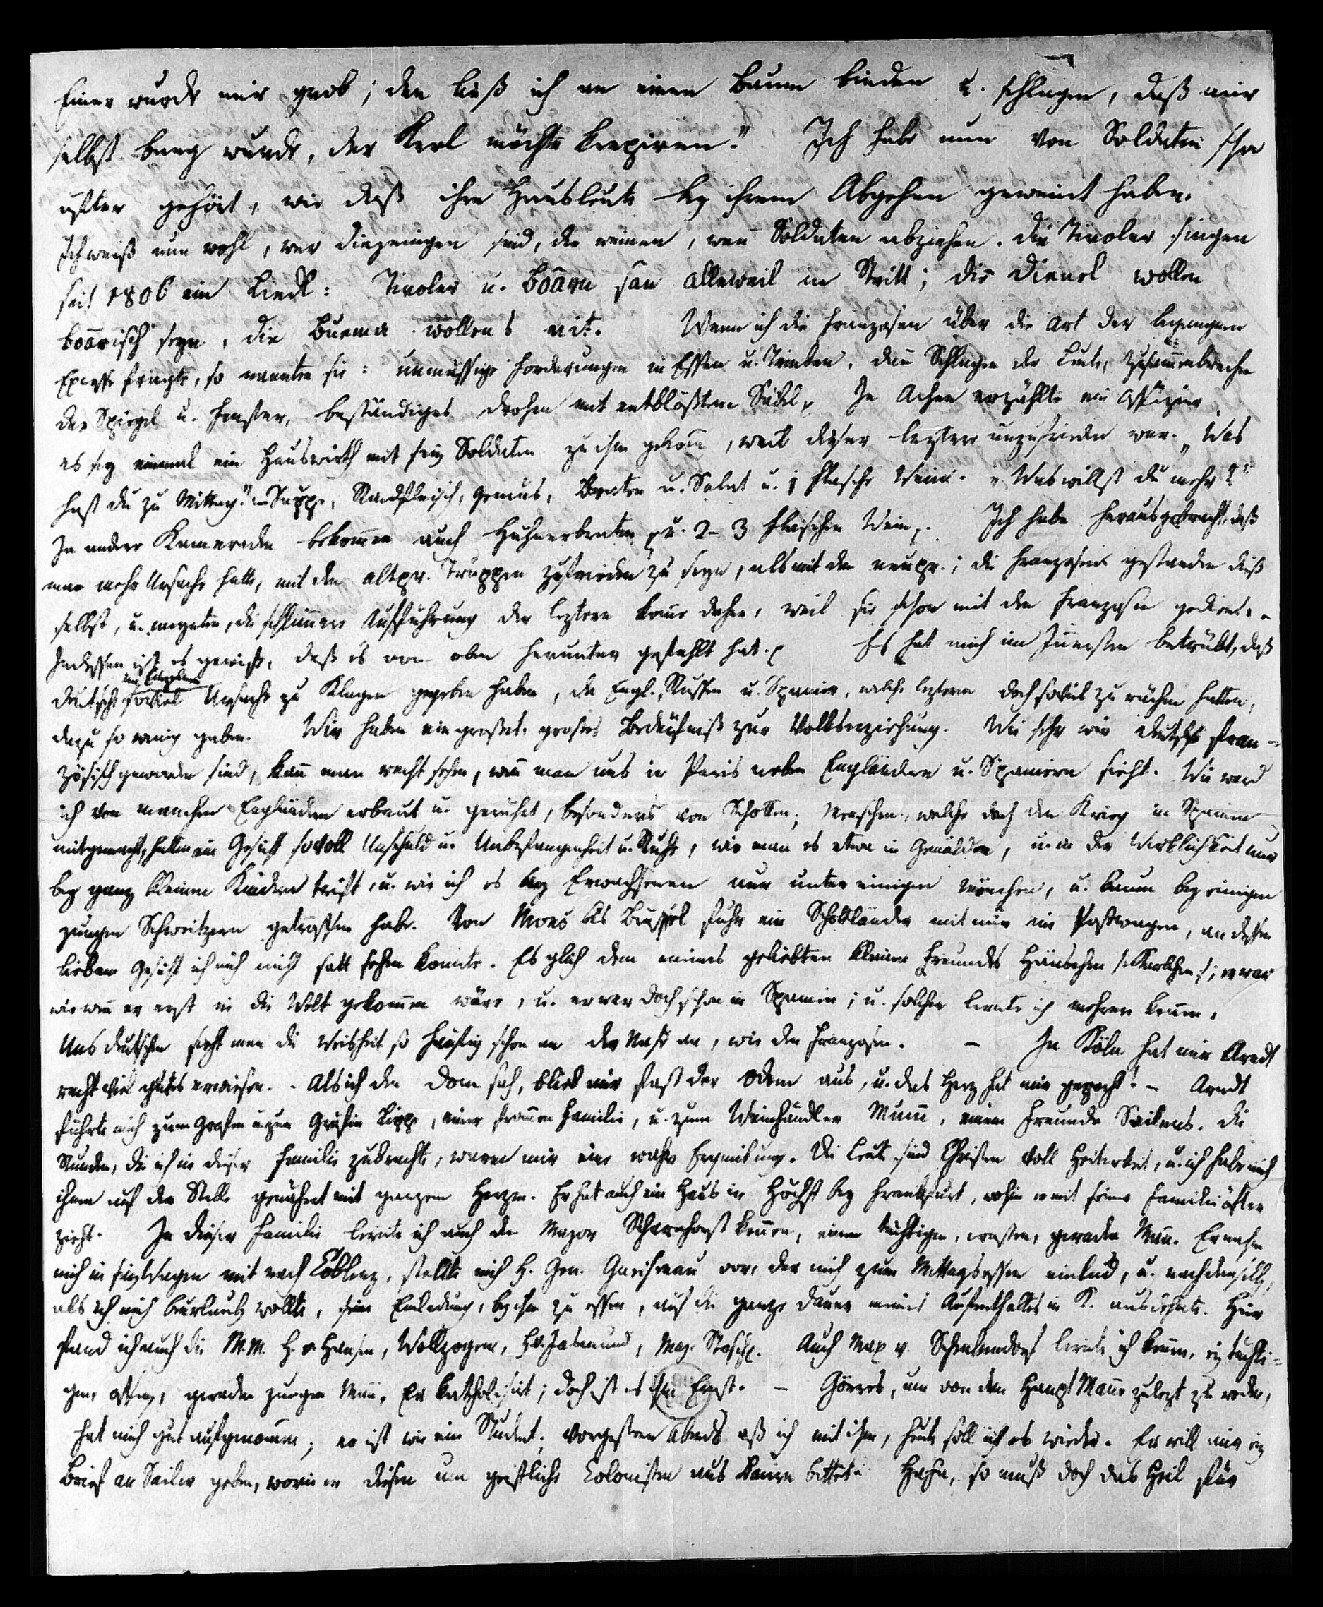 Einer wurde mir grob; den ließ ich an einen Baum binden u. schlagen, daß mir
selbst bang wurde, der Kerl möchte krepiren." Ich habe nun von Soldaten schon
öfter gehört, wie daß ihre Hausleute bey ihrem Abgehen geweint haben.
Ich weiß nun wohl, wer diejenigen sind, die weinen, wenn Soldaten abziehen. Die Tiroler singen
seit 1806 ein Liedl: Tiroler u. Boarn san alleweil in Stritt; die Diendl wollen
boarisch seyn, die Buema wollens nit. Wenn ich die Franzosen über die Art der begangenen
Excesse fragte, so nannten sie: unmässige Forderungen in Essen u. Trinken, dann Schlagen der Leute, Zusammenbrechen
der Spiegel u. Fenster, beständiges Drohen mit entblößtem Säbel. In Achen erzählte ein Offizier,
es sey einmal ein Hauswirth mit sein Soldaten zu ihm gekommen, weil dieser leztere unzufrieden war. „Was
hast du zu Mittag?" „Suppe, Rindfleisch, Gemüs, Braten u. Salat u. 1 Flasche Wein. „Was willst du mehr?"
Ja andere Kameraden bekommen auch Hühnerbraten u. 2-3 Flaschen Wein. Ich habe herausgebracht, daß
man mehr Ursache hatte, mit den altpr. Truppen zufrieden zu seyn, als mit den neupr.; die Franzosen gestanden dieß
selbst, u. meynten, die schlimmere Aufführung der leztern komme daher, weil sie schon mit den Franzosen gedient.
Indessen ist es gewiß, daß es von oben herunter gefehlt hat. Es hat mich im Innersten betrübt, daß
Deutsche soviel Ursache zu Klagen gegeben haben, da Engl. Russen u. Spanier, welche leztern doch soviel zu rächen hatten,
dazu so wenig gaben. Wir haben ein großes, großes Bedürfniß zur Volkserziehung. Wie sehr wir Deutsche fran-
zösisch geworden sind, kann man recht sehen, wenn man uns in Paris neben Engländern u. Spaniern sieht. Wie ward
ich von manchen Engländern erbaut u. gerührt, besonders von Schotten; Menschen, welche doch den Krieg in Spanien
mitgemacht, hatten ein Gesicht so voll Unschuld u. Unbefangenheit u. Ruhe, wie man es etwa in Gemälden, u. in der Wirklichkeit nur
bey ganz kleinen Kindern trifft, u. wie ich es bey Erwachsenen nur unter einigen Mönchen, u. kaum bey einigen
jungen Schweitzern getroffen habe. Von Mons bis Brüssel fuhr ein Schottländer mit mir im Postwagen, an dessen
lieben Gesicht ich mich nicht satt sehen konnte. Es glich dem meines geliebten kleinen Freundes Hänschen; er war
wie wenn er erst in die Welt gekommen wäre, u. er war doch schon in Spanien; u. solcher lernte ich mehrere kennen.
Uns Deutschen sieht man die Weisheit so häufig schon an der Nase an, wie den Franzosen. — In Köln hat mir Arndt
recht viel Gutes erwiesen. - Als ich den Dom sah, blieb mir fast der Odem aus, u. das Herz hat mir gepocht! - Arndt
führte mich zum Grafen u. zur Gräfin Lippe, einer frommen Familie, u. zum Weinhändler Mumm, einem Freunde Sailers. Die
Stunden, die ich in dieser Familie zubrachte, waren mir eine wahre Erquickung. Die Leute sind Christen voll Heiterkeit, u. ich habe mich
ihnen auf der Stelle genähert mit ganzem Herzen. Er hat auch ein Haus in Höchst bey Frankfurt, wohin er mit seiner Familie öfter
zieht. In dieser Familie lernte ich auch den Major Scharnhorst kennen, einen tüchtigen, ernsten, geraden Mann. Er nahm
mich in seinem Wagen mit nach Coblenz, stellte mich H. Gen. Gneisenau vor, der mich zum Mittagsessen einlud, u. nach demselben,
als ich mich beurlauben wollte, seine Einladung, bey ihm zu essen, auf die ganze Dauer meines Aufenthaltes in K. ausdehnte. Hier
fand ich auch die MM. H. v Hansen, Wollzogen, Maj. Stosch. Auch Max v. Schenkendorf lernte ich kennen, ein tüchti-
gen, offnen, geraden jungen Mann. Er katholisirt; doch ist es ihm Ernst. — Görres, um von dem Haupt Manne zulezt zu reden,
hat mich gut aufgenommen; er ist wie ein Student. Vorgestern Abends aß ich mit ihm, heute soll ich es wieder. Er will mir ein
Brief an Sailer geben, worin er diesen um geistliche Colonisten aus Baiern bittet. so muß doch das Heil für